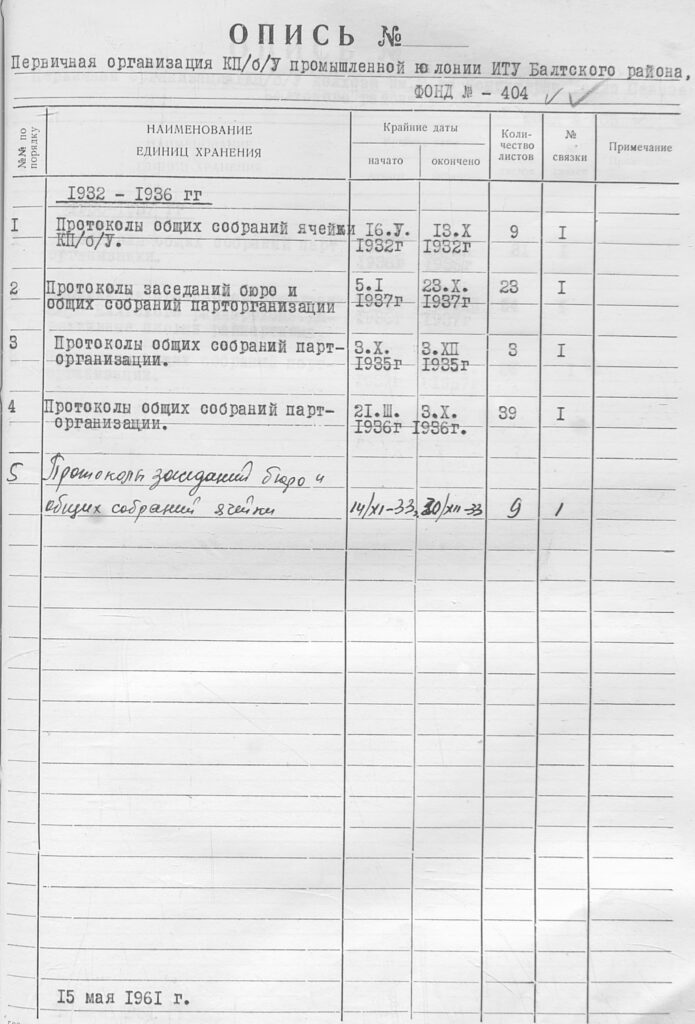 ОПИСЬ №
Первичная организация КП/б/У промышленной колонии ИТУ Балтского района,
ФОНД № - 404
№№ по порядку
НАИМЕНОВАНИЕ
ЕДИНИЦ ХРАНЕНИЯ
Крайние даты
начато
окончено
Коли-
чество
листов
№
связки
Примечание
1932 - 1936 гг
I Протоколы общих собраний ячейки 16.У. 13.X 9 I
КП/б/У. 1932г 1932г
2 Протоколы заседаний бюро и 5.I 23.X. 23 I
общих собраний парторганизации 1937г 1937г
3 Протоколы общих собраний парт- 3.X. 3.XII 3 I
организации. 1935г 1935г
4 Протоколы общих собраний парт- 21.Ш. 3.X. 39 I
организации. 1936г 1936г.
5 Протоколы заседаний бюро и
общих собраний ячейки 14/XI-33г. 30/XII-33 9 1
15 мая 1961 г.